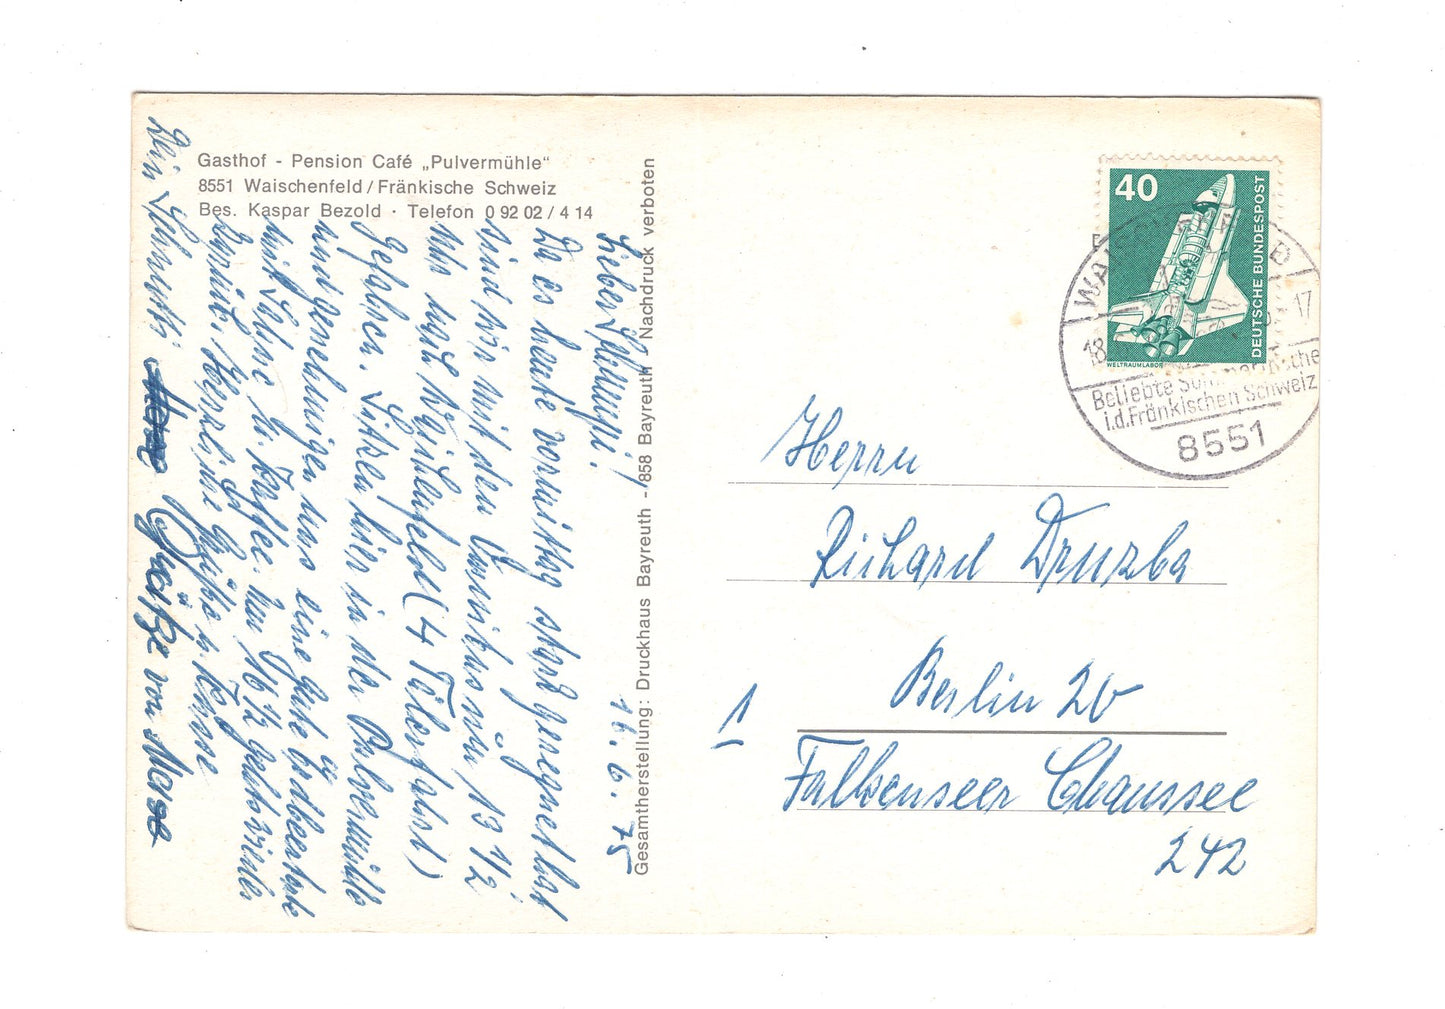 Gasthof - Pension Café „Pulvermühle"
8551 Waischenfeld / Fränkische Schweiz
Bes. Kaspar Bezold · Telefon 0 92 02 / 4 14
16. 6. 75
Lieber
Da es heute vormittag stark geregnet hat
sind wir mit dem Omnibus um 13 1/2
Uhr nach Waischenfeld (4 Täler fahrt)
gefahren. Sitzen hier in der Pulvermühle
und genehmigen uns eine gute Erdbeertorte
mit Sahne u. Kaffee. Um 16 1/2 geht's wieder
zurück. Herzliche Grüße u. Küsse
Dein
Grüße von
Gesamtherstellung: Druckhaus Bayreuth - 858 Bayreuth · Nachdruck verboten
40
DEUTSCHE BUNDESPOST
WELTRAUMLABOR
18
17
Beliebte
i.d. Fränkischen Schweiz
8551
Herrn
Richard Druzba
1
Berlin 20
Falkenseer Chaussee
242